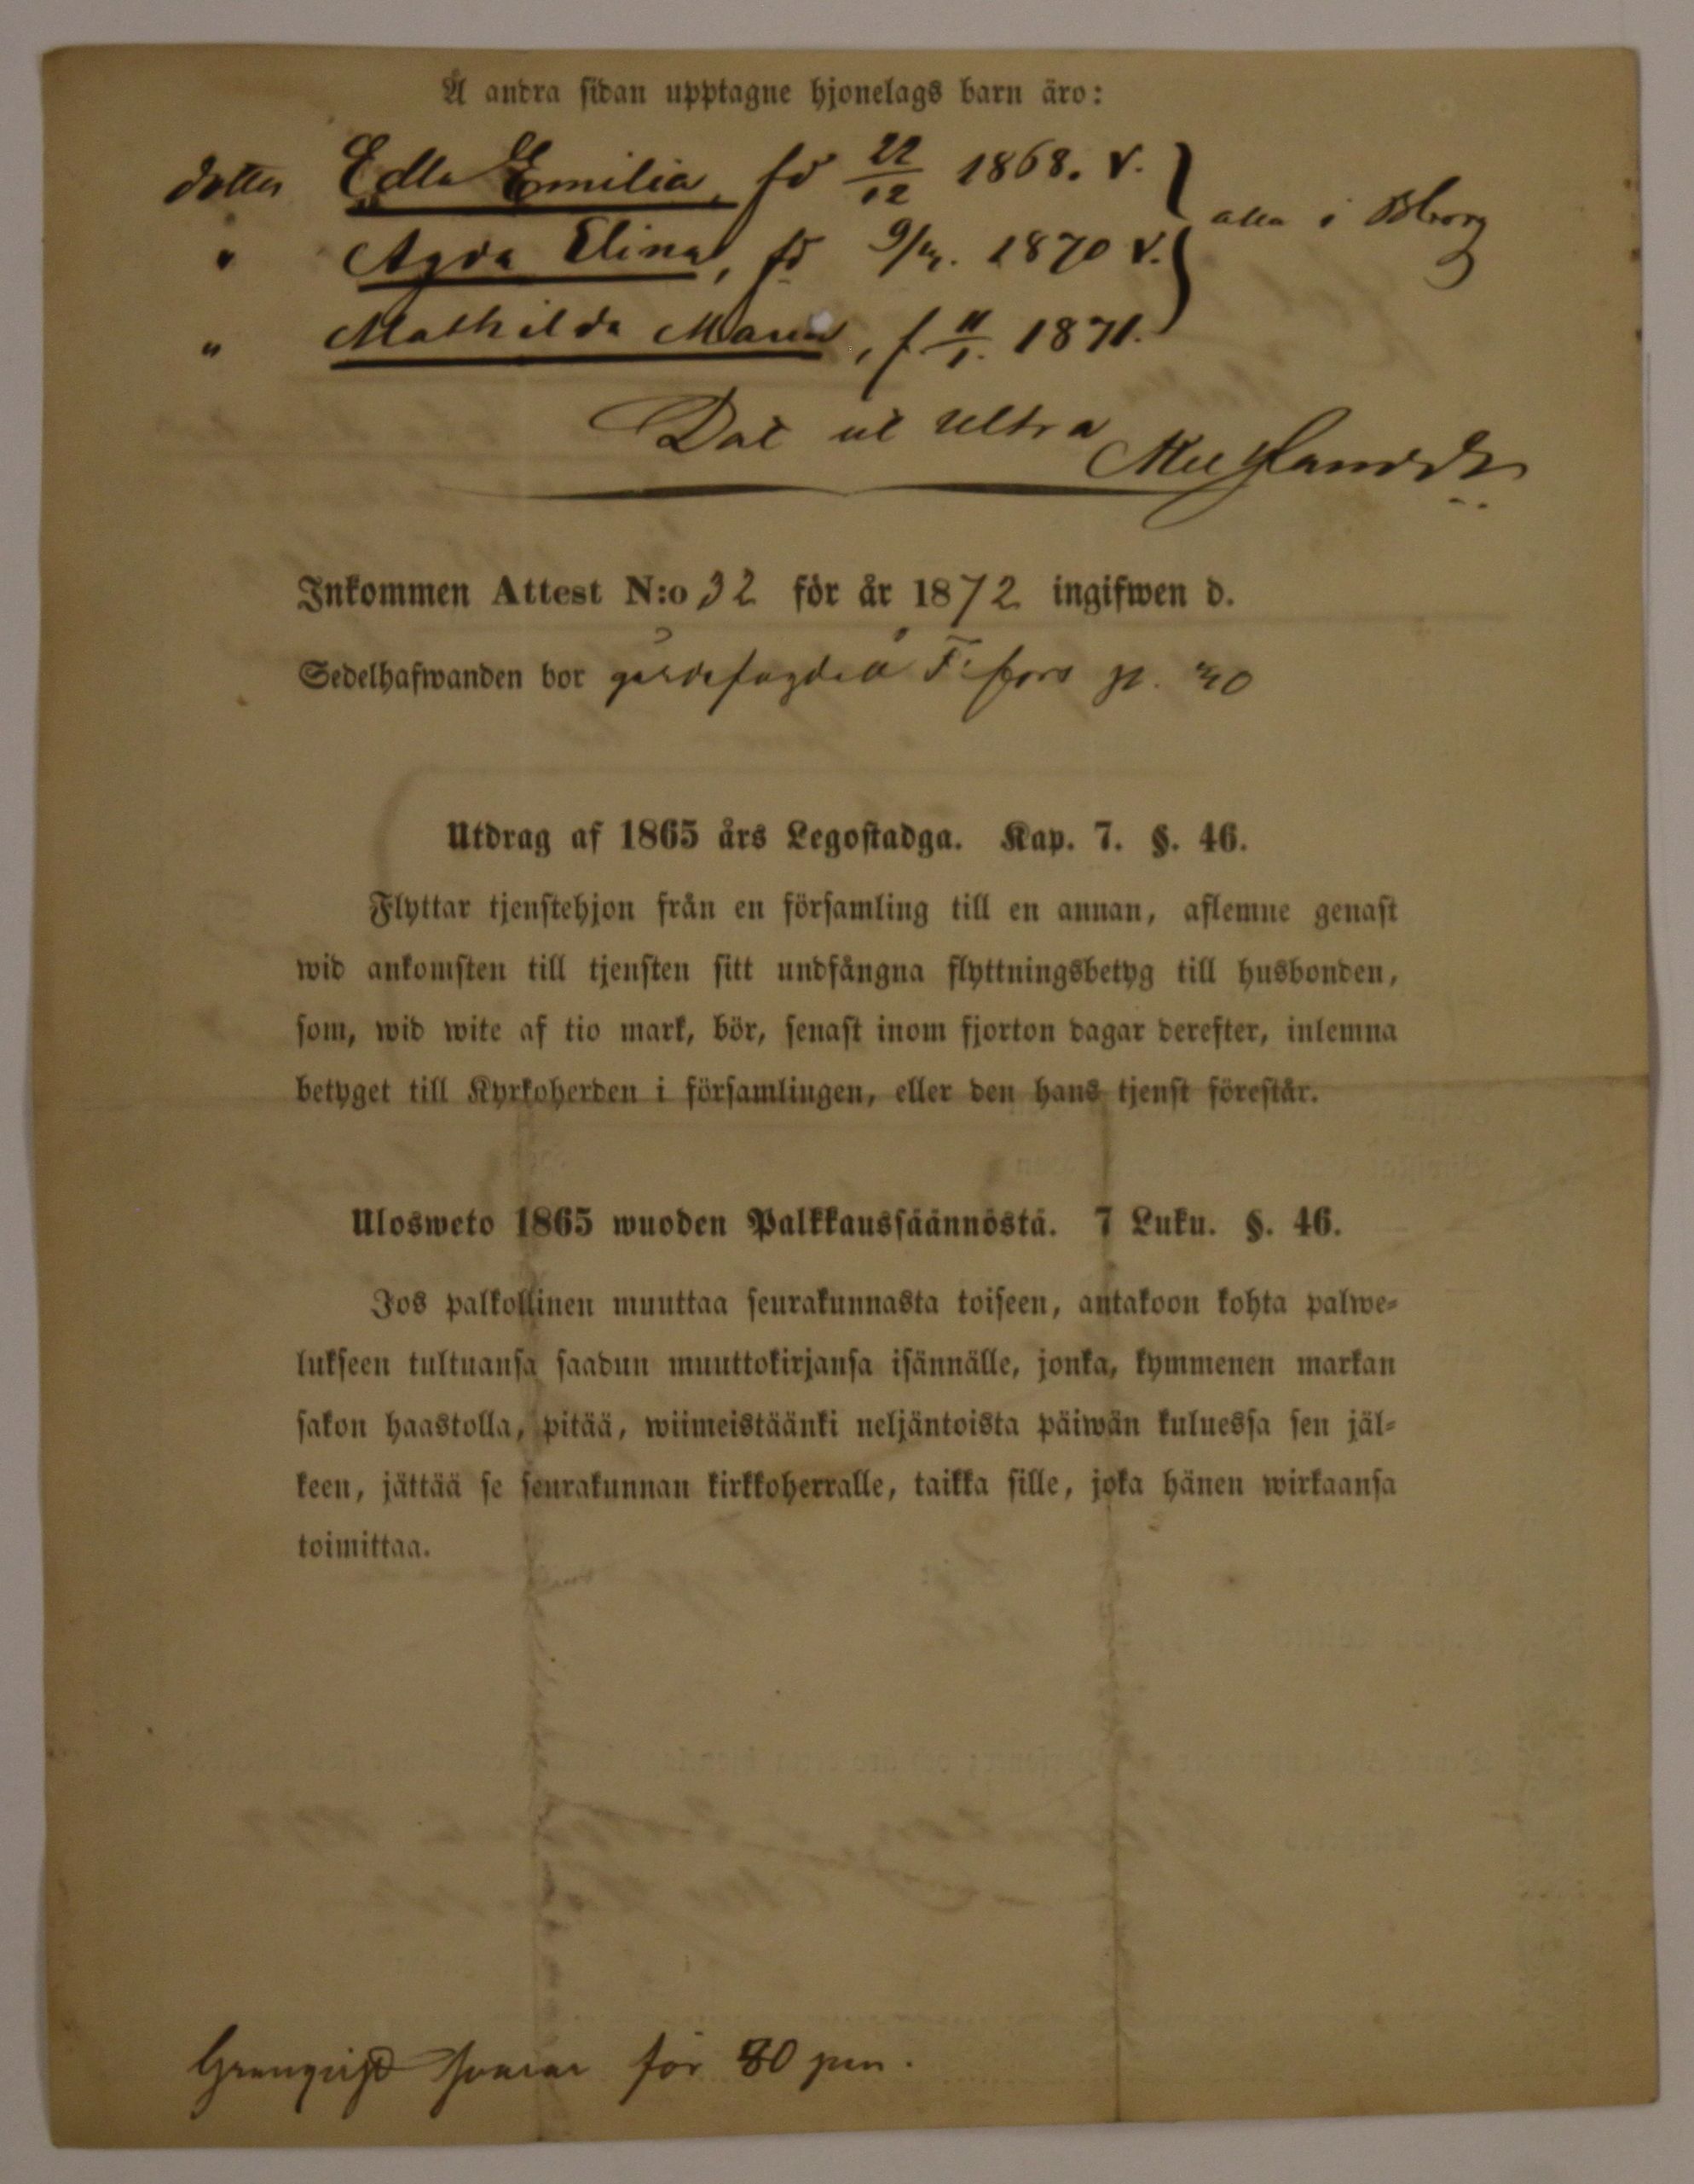 Å andra sidan upptagne hjonelags barn äro:
dotter Edla Emilia, fö 22/12 1868. v.
" Agda Elina, fö 9/ 1870 v. alla i
" Mathilda Maria, f. 11/1. 1871.
Dat ut ultra
Inkommen Attest N:o 32 för år 1872 ingifwen d.
Sedelhafwanden bor å F:fors p. 40
Utdrag af 1865 års Legostadga. Kap. 7. §. 46.
Flyttar tjenstehjon från en församling till en annan, aflemne genast
wid ankomsten till tjensten sitt undfångna flyttningsbetyg till husbonden,
som, wid wite af tio mark, bör, senast inom fjorton dagar derefter, inlemna
betyget till Kyrkoherden i församlingen, eller den hans tjenst förestår.
Ulosweto 1865 wuoden Palkkaussäännöstä. 7 Luku. §. 46.
Jos palkollinen muuttaa seurakunnasta toiseen, antakoon kohta palwe-
lukseen tultuansa saadun muuttokirjansa isännälle, jonka, kymmenen markan
sakon haastolla, pitää, wiimeistäänki neljäntoista päiwän kuluessa sen jäl-
keen, jättää se seurakunnan kirkkoherralle, taikka sille, joka hänen wirkaansa
toimittaa.
Granqvist svarar för 80 pen.